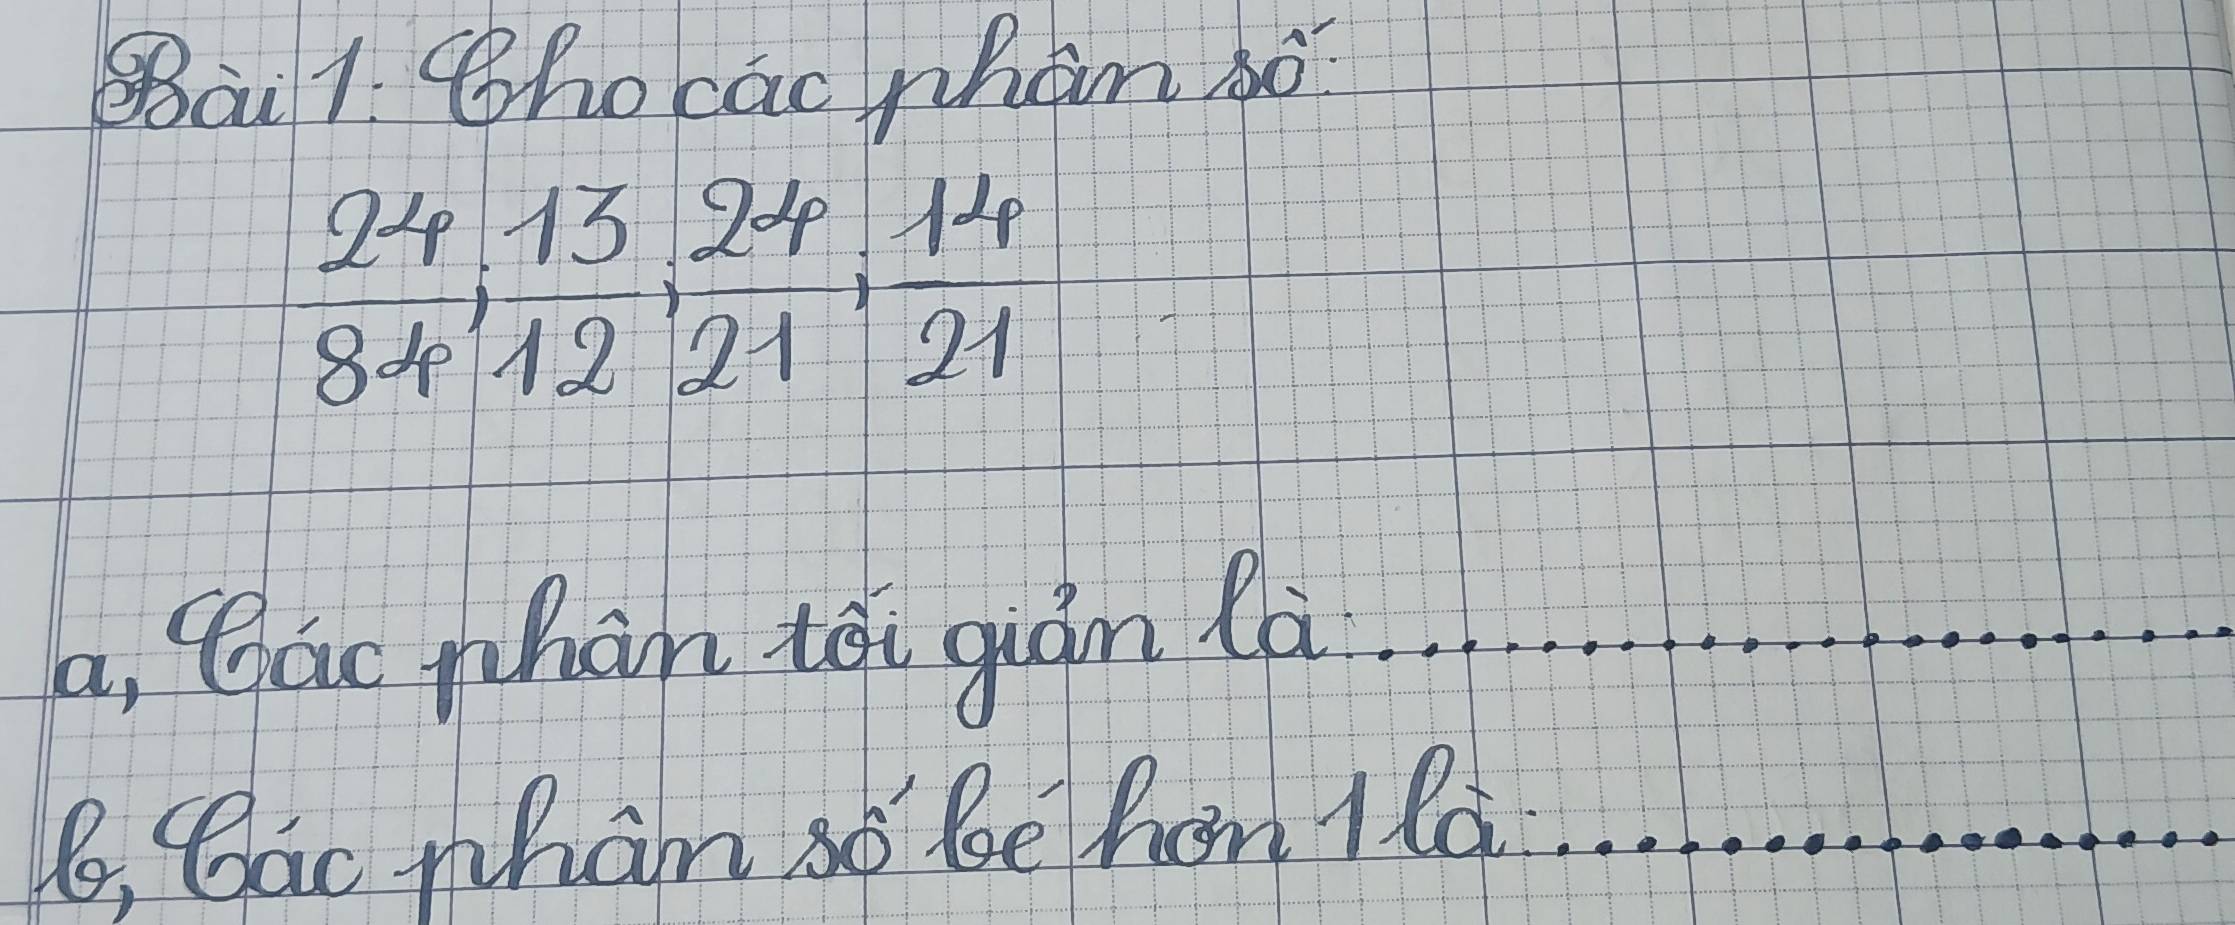 Bài 1: Cho các phân số:
24/84; 13/12; 24/21; 14/21
a, Các phân tối giản là:........................
b, Các phân số bé hơn 1 là:..................